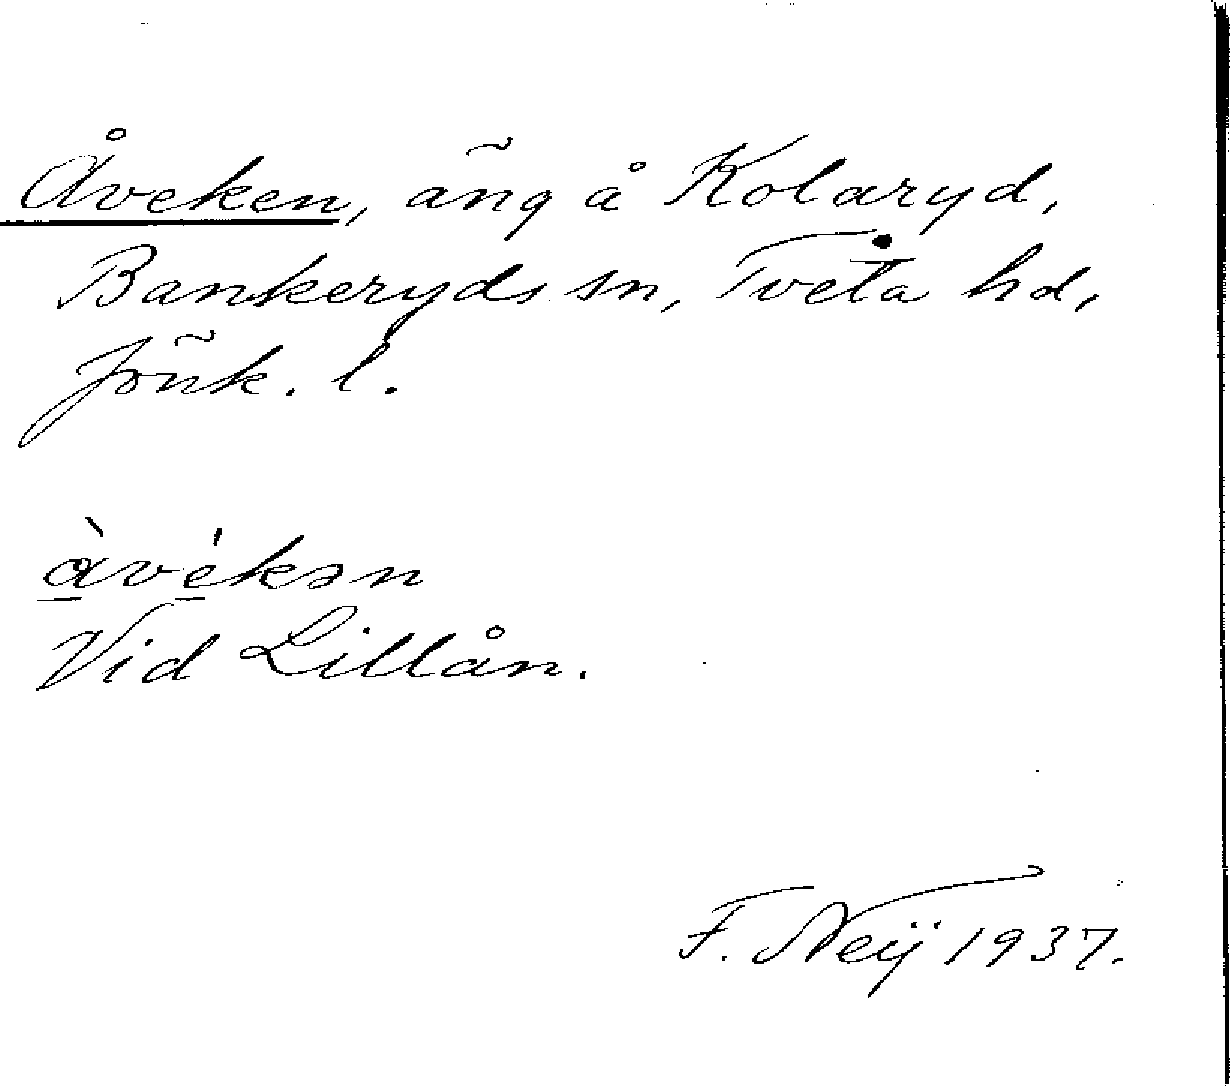 Åveken, äng å Kolaryd,
Bankeryds sn, Tveta hd,
Jönk. l.
å̠̀vé̠kən
Vid Lillån.
F. Neij 1937.